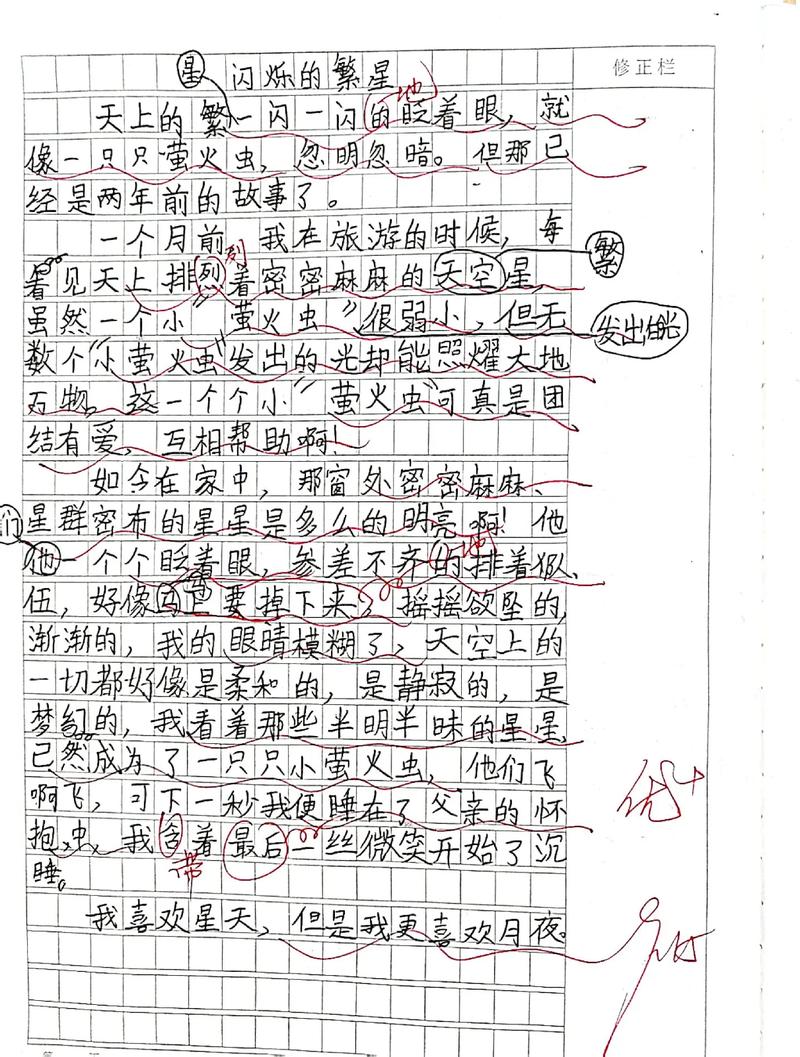 修正栏
星 闪烁的繁星
地
天上的繁一闪一闪的眨着眼，就
像一只只萤火虫，忽明忽暗。但那已
经是两年前的故事了。
一个月前 我在旅游的时候，每
列 繁
看见天上排烈着密密麻麻的天空星
虽然一个小“萤火虫”很弱小，但无
发出
数个“小萤火虫”发出的光却能照耀大地
万物。这一个个小“萤火虫”可真是团
结有爱，互相帮助啊！
如今在家中，那窗外密密麻麻、
星群密布的星星是多么的明亮啊！他
们 地
他一个个眨着眼，参差不齐的排着队、
伍，好像 要掉下来，摇摇欲坠的，
渐渐的，我的眼睛模糊了，天空上的
一切都好像是柔和的，是静寂的，是
梦幻的，我看着那些半明半昧的星星，
已然成为了一只只小萤火虫，他们飞
啊飞，可下一秒我便睡在了父亲的怀
抱虫，我含着最后一丝微笑开始了沉
带
睡。
我喜欢星天，但是我更喜欢月夜。
优+